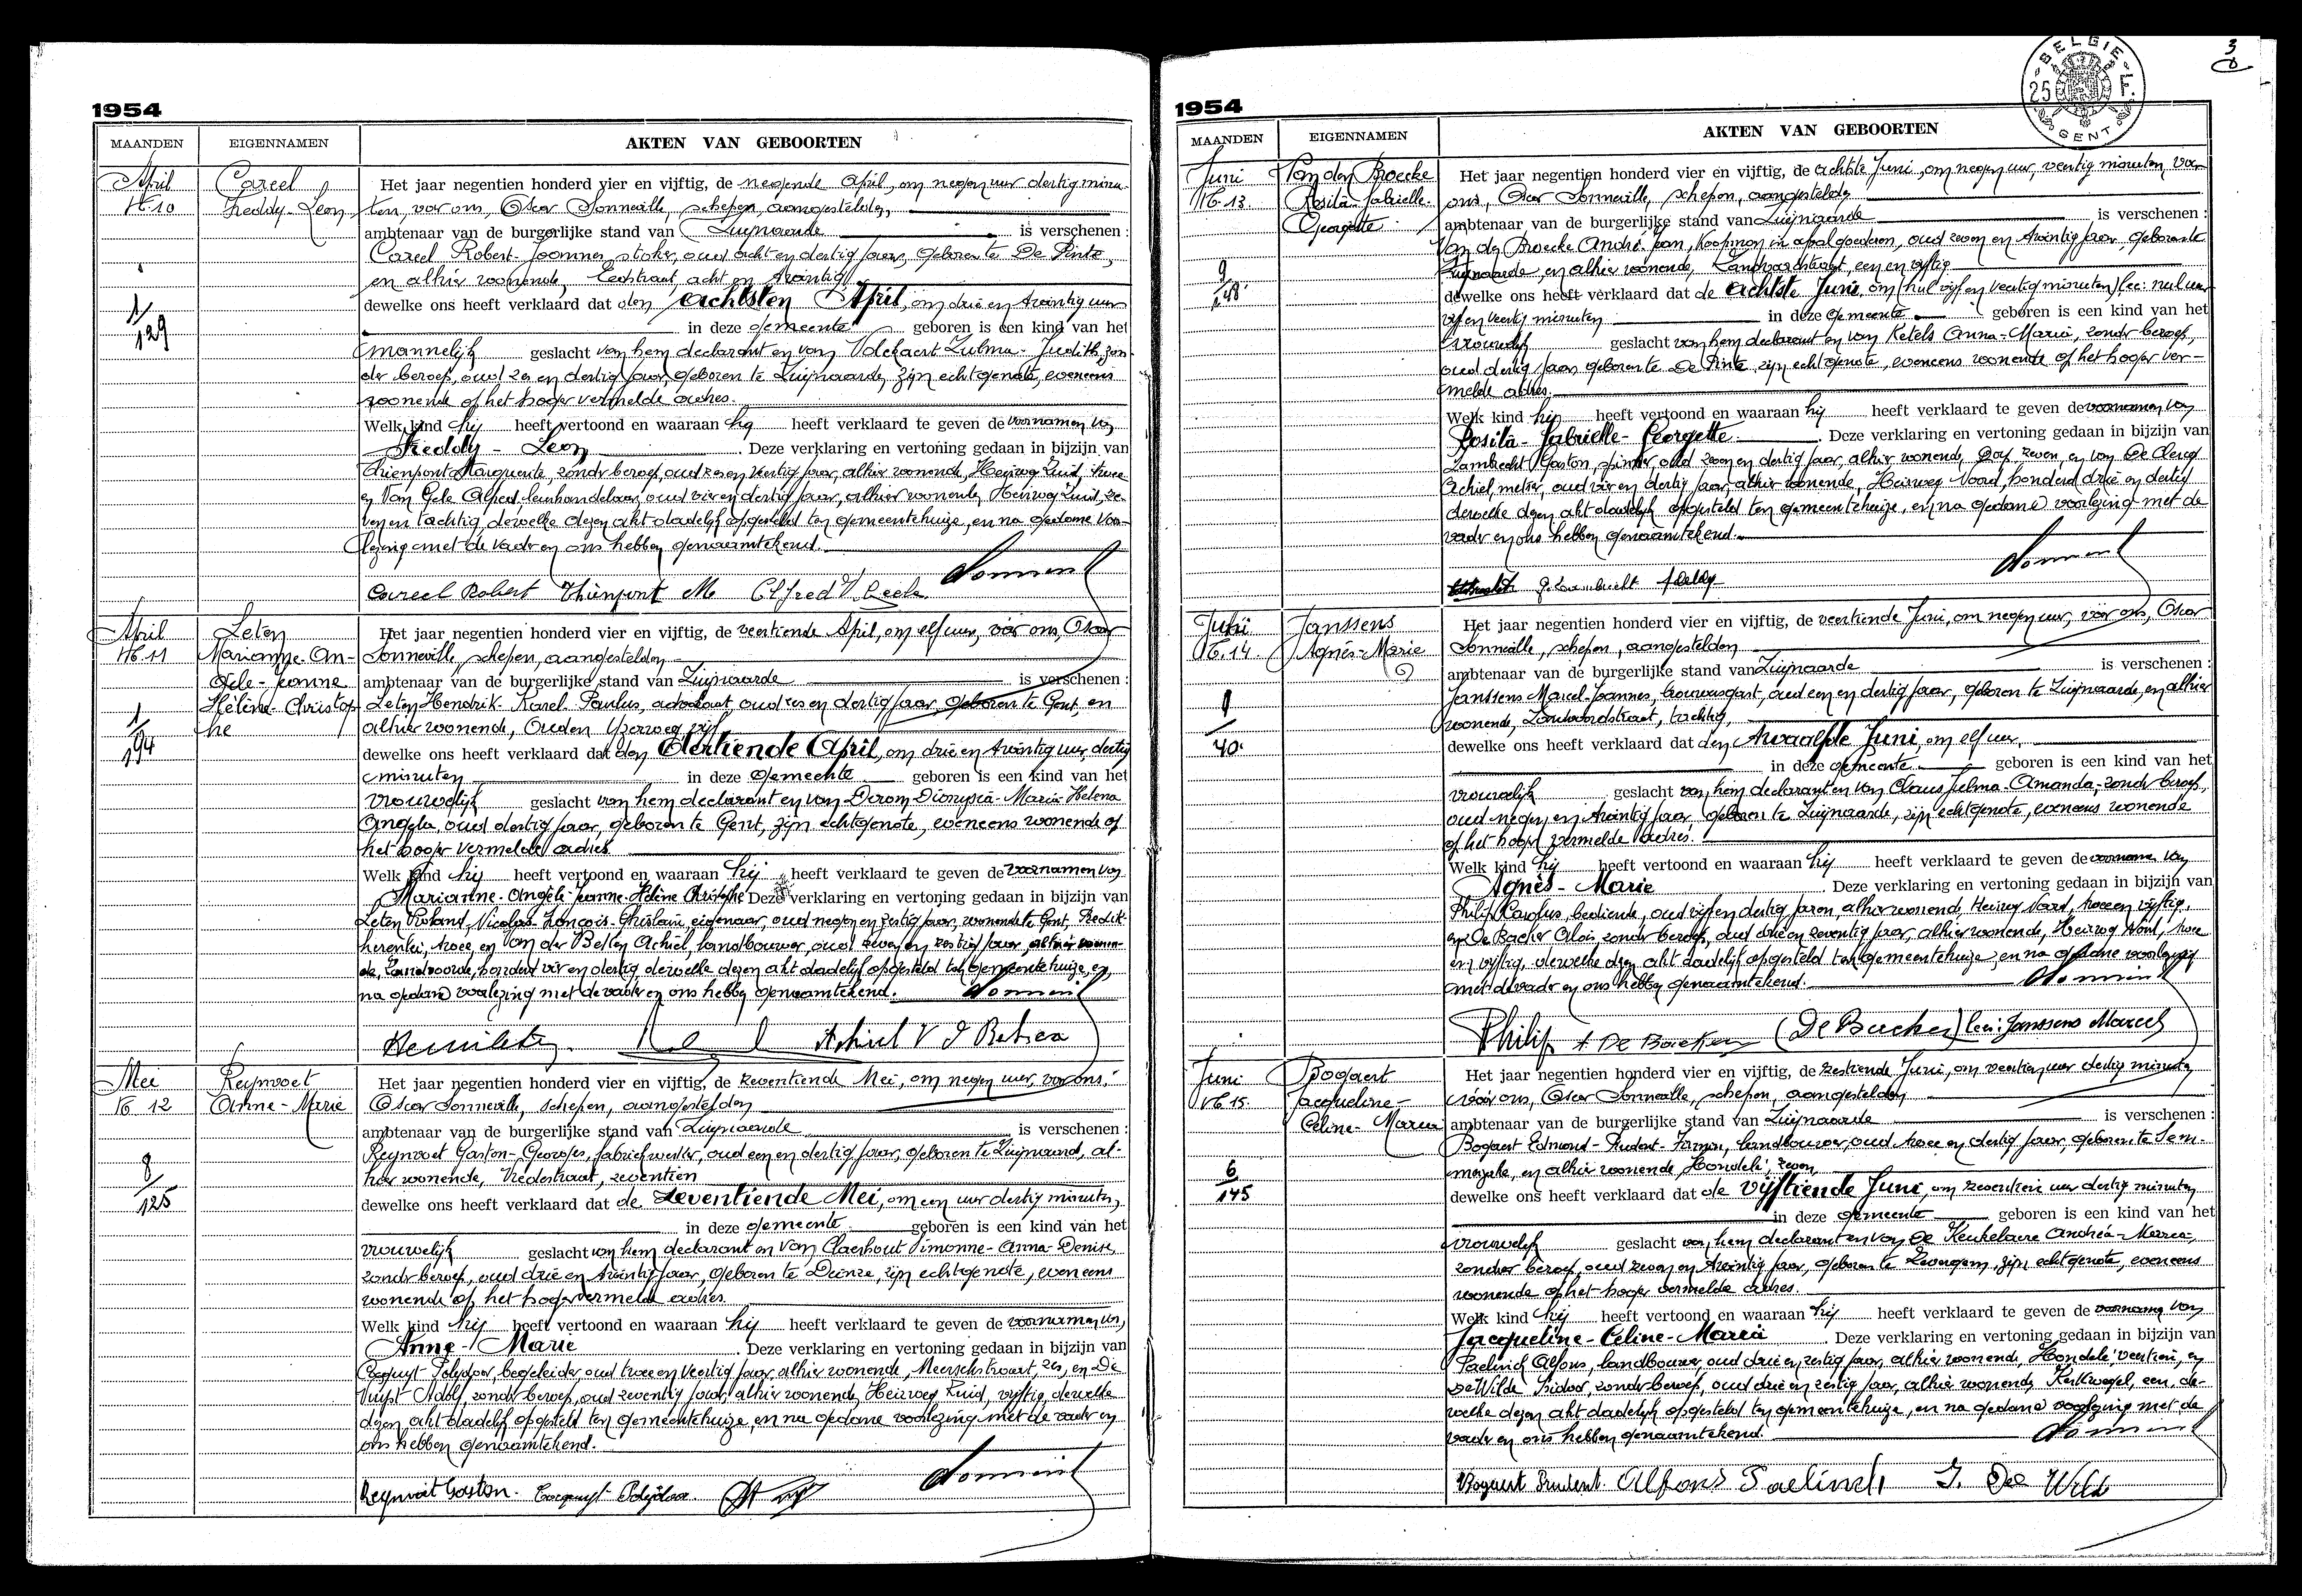 1954
MAANDEN
EIGENNAMEN
AKTEN VAN GEBOORTEN
April
N° 10
Careel
Freddy-Leon
1/129
Het jaar negentien honderd vier en vijftig, de negende April, om negen uur dertig minu-
ten, voor ons, Oscar Sonneville, schepen, aangestelden
ambtenaar van de burgerlijke stand van Zwijnaarde is verschenen :
Careel Robert-Joannes, stoker, oud acht en dertig jaar, geboren te De Pinte,
en alhier wonende, acht en twintig
dewelke ons heeft verklaard dat den achtsten April, om drie en twintig uur
in deze gemeente geboren is een kind van het
mannelijk geslacht van hem declarant en van Zulma-Judith, zon-
der beroep, oud zes en dertig jaar, geboren te Zwijnaarde, zijn echtgenote, eveneens
wonende op het hoger vermelde adres.
Welk kind hij heeft vertoond en waaraan hij heeft verklaard te geven de voornamen van
Freddy - Leon. Deze verklaring en vertoning gedaan in bijzijn van
Thienpont Marguerite, zonder beroep, oud zes en veertig jaar, alhier wonende, Heirweg Zuid, twee
en Van Gele Alfred, oud vier en dertig jaar, alhier wonende, Heirweg Zuid, ze-
ven en tachtig, dewelke dezen akt dadelijk opgesteld ten gemeentehuize, en na gedane voor-
lezing met de vader en ons hebben genaamtekend.
Careel Robert Thienpont M Alfred V. Geele
April
N° 11
Leten
Marianne-An-
gèle-Jeanne
Hélène-Christop-
he
1/194
Het jaar negentien honderd vier en vijftig, de veertiende April, om elf uur, voor ons, Oscar
Sonneville, schepen, aangestelden
ambtenaar van de burgerlijke stand van Zwijnaarde is verschenen :
Leten Hendrik-Karel-Paulus, advokaat, oud zes en dertig jaar, geboren te Gent, en
alhier wonende, Ouden Yzerweg, vijf
dewelke ons heeft verklaard dat den dertiende April, om drie en twintig uur, dertig
minuten in deze gemeente geboren is een kind van het
vrouwelijk geslacht van hem declarant en van Derom Dionysia-Maria-Helena
Angela, oud dertig jaar, geboren te Gent, zijn echtgenote, eveneens wonende op
het hoger vermelde adres.
Welk kind hij heeft vertoond en waaraan hij heeft verklaard te geven de voornamen van
Marianne-Angèle-Jeanne-Hélène-Christophe Deze verklaring en vertoning gedaan in bijzijn van
Leten Roland-Nicolas-François-Ghislain, eigenaar, oud negen en zestig jaar, wonende te Gent,
twee, en Van der Beken Achiel, landbouwer, oud zeven en zestig jaar, alhier wonen-
de, honderd vier en dertig, dewelke dezen akt dadelijk opgesteld ten gemeentehuize, en
na gedane voorlezing met de vader en ons hebben genaamtekend.
Mei
N° 12
Reynvoet
Anne-Marie
8/125
Het jaar negentien honderd vier en vijftig, de zeventiende Mei, om negen uur, voor ons,
Oscar Sonneville, schepen, aangestelden
ambtenaar van de burgerlijke stand van Zwijnaarde is verschenen :
Reynvoet Gaston-Georges, fabriekwerker, oud een en dertig jaar, geboren te Zwijnaarde, al-
hier wonende, Vredestraat, zeventien
dewelke ons heeft verklaard dat de zeventiende Mei, om een uur dertig minuten,
in deze gemeente geboren is een kind van het
vrouwelijk geslacht van hem declarant en van Claerhout Simonne-Anna-Denise,
zonder beroep, oud drie en twintig jaar, geboren te Deinze, zijn echtgenote, eveneens
wonende op het hoger vermeld adres.
Welk kind hij heeft vertoond en waaraan hij heeft verklaard te geven de voornamen van
Anne-Marie. Deze verklaring en vertoning gedaan in bijzijn van
Polydoor, begeleider, oud twee en veertig jaar, alhier wonende, Meerschstraat, zes, en De
Vuyst Adolf, zonder beroep, oud zeventig jaar, alhier wonende, Heirweg Zuid, vijftig, dewelke
dezen akt dadelijk opgesteld ten gemeentehuize, en na gedane voorlezing met de vader en
ons hebben genaamtekend.
Reynvoet Gaston.
1954
3
BELGIE
25 F.
GENT
MAANDEN
EIGENNAMEN
AKTEN VAN GEBOORTEN
Juni
N° 13.
Van den Broecke
Rosita-Gabrielle-
Georgette
9/148
Het jaar negentien honderd vier en vijftig, de achtste Juni, om negen uur, veertig minuten, voor
ons, Oscar Sonneville, schepen, aangestelden
ambtenaar van de burgerlijke stand van Zwijnaarde is verschenen :
Van den Broecke André-Jean, koopman in afvalgoederen, oud zeven en twintig jaar, geboren te
Zwijnaarde, en alhier wonende, een en vijftig
dewelke ons heeft verklaard dat de achtste Juni, om (nul vijf en veertig minuten) lees: nul uur
vijf en veertig minuten in deze gemeente geboren is een kind van het
vrouwelijk geslacht van hem declarant en van Ketels Anna-Maria, zonder beroep,
oud dertig jaar, geboren te De Pinte, zijn echtgenote, eveneens wonende op het hoger ver-
melde adres.
Welk kind hij heeft vertoond en waaraan hij heeft verklaard te geven de voornamen van
Rosita-Gabrielle-Georgette. Deze verklaring en vertoning gedaan in bijzijn van
Lambrecht Gaston, oud zeven en dertig jaar, alhier wonende, Dorp, zeven, en van De Clercq
Achiel, metser, oud vier en dertig jaar, alhier wonende, Heirweg Noord, honderd drie en dertig
dewelke dezen akt dadelijk opgesteld ten gemeentehuize, en na gedane voorlezing met de
vader en ons hebben genaamtekend.
Juni
N° 14.
Janssens
Agnès-Marie
40.
Het jaar negentien honderd vier en vijftig, de veertiende Juni, om negen uur, voor ons, Oscar
Sonneville, schepen, aangestelden
ambtenaar van de burgerlijke stand van Zwijnaarde is verschenen :
Janssens Marcel-Joannes, brouwersgast, oud een en dertig jaar, geboren te Zwijnaarde, en alhier
wonende, tachtig,
dewelke ons heeft verklaard dat den twaalfde Juni, om elf uur,
in deze gemeente geboren is een kind van het
vrouwelijk geslacht van hem declarant en van Claus Julma-Amanda, zonder beroep,
oud negen en twintig jaar, geboren te Zwijnaarde, zijn echtgenote, eveneens wonende
op het hoger vermelde adres.
Welk kind hij heeft vertoond en waaraan hij heeft verklaard te geven de voorname van
Agnès-Marie. Deze verklaring en vertoning gedaan in bijzijn van
Philips Karolus, bediende, oud vijf en dertig jaren, alhier wonende, Heirweg Noord, twee en vijftig,
en De Backer Aloïs, zonder beroep, oud drie en zeventig jaar, alhier wonende, Heirweg Noord, twee
en vijftig, dewelke dezen akt dadelijk opgesteld ten gemeentehuize, en na gedane voorlezing
met de vader en ons hebben genaamtekend.
Philips A De Backer (De Backer) lees: Janssens Marcel
Juni
N° 15.
Bogaert
Jacqueline-
Céline-Maria
6/145
Het jaar negentien honderd vier en vijftig, de zestiende Juni, om veertien uur dertig minuten
voor ons, Oscar Sonneville, schepen, aangestelden
ambtenaar van de burgerlijke stand van Zwijnaarde is verschenen :
Bogaert Edmond-Prudent-Firmin, landbouwer, oud twee en dertig jaar, geboren te Sem-
merzake, en alhier wonende, Hondelé, zeven,
dewelke ons heeft verklaard dat de vijftiende Juni, om zeventien uur dertig minuten
in deze gemeente geboren is een kind van het
vrouwelijk geslacht van hem declarant en van De Keukelaere Andréa-Maria,
zonder beroep, oud zeven en twintig jaar, geboren te Zevergem, zijn echtgenote, eveneens
wonende op het hoger vermelde adres.
Welk kind hij heeft vertoond en waaraan hij heeft verklaard te geven de voornamen van
Jacqueline-Céline-Maria. Deze verklaring en vertoning gedaan in bijzijn van
Paelinck Alfons, landbouwer, oud drie en zestig jaar, alhier wonende, Hondelé veertien, en
De Wilde Isidoor, zonder beroep, oud drie en zestig jaar, alhier wonende, Kerkwegel, een, de-
welke dezen akt dadelijk opgesteld ten gemeentehuize, en na gedane voorlezing met de
vader en ons hebben genaamtekend.
Bogaert Prudent. Alfons Paelinck I. De Wilde